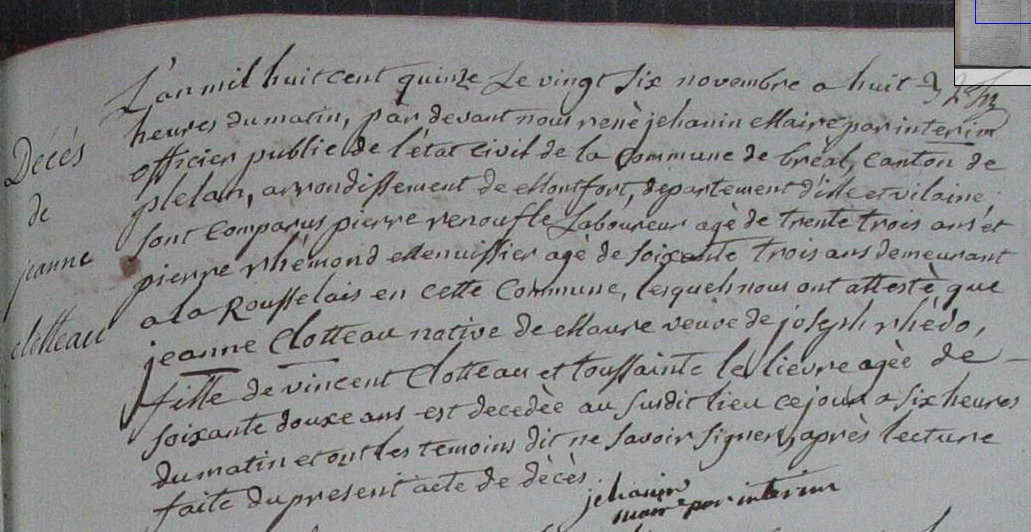 L'an mil huit cent quinze Le vingt Six novembre a huit
heures du matin, par devant nous renè jehanin Maire par interim
officier public de l'état civil de la Commune de breal, Canton de
plelan, arrondissement de Montfort, departement d'ille et vilaine,
sont Comparus pierre renouf le Laboureur agè de trente trois ans et
pierre rhémond Menuissier agè de soixante trois ans demeurant
a la Rousselais en cette Commune, lesquels nous ont attestè que
jeanne Clotteau native de Maure veuve de joseph rhèdo,
fille de vincent Clotteau et toussainte le lievre agèe de
soixante douxe ans est decedèe au susdit lieu ce jour a six heures
du matin et ont les temoins dit ne savoir signer, après lecture
faite du present acte de dècès.
jehanin
maire par interim
Décès
de
jeanne
clotteau